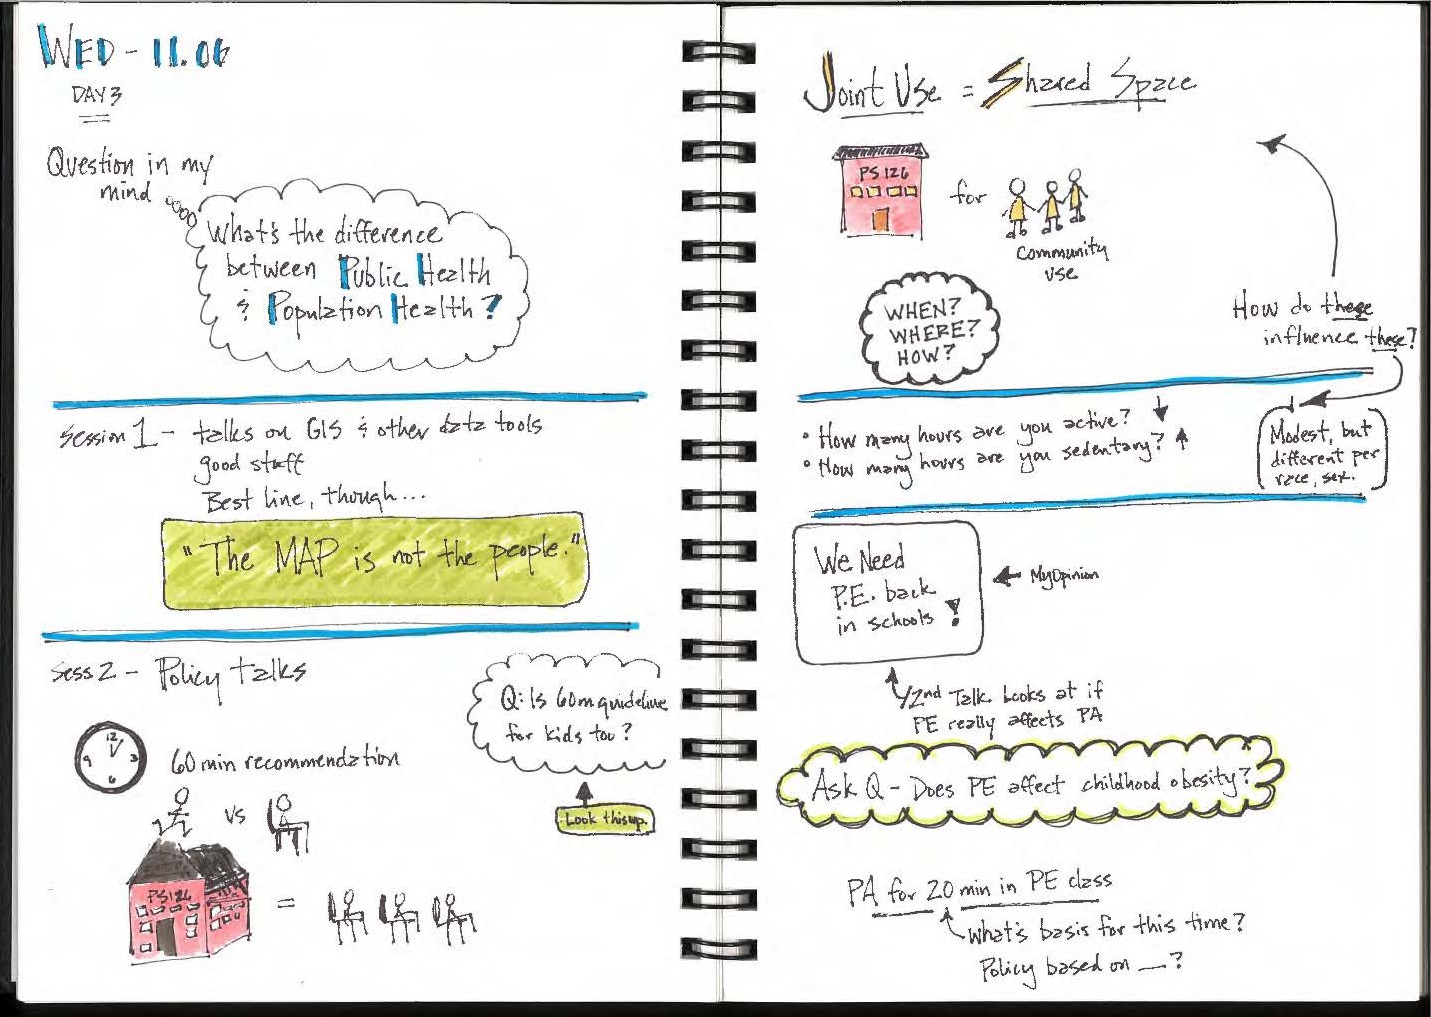 WED - 11.06
DAY 3
Question in my
mind
What's the difference
between Public Health
& Population Health?
Session 1 - talks on GIS & other data tools
good stuff
Best line, though...
"The MAP is not the people."
Sess 2 - Policy talks
Q: Is 60m guideline
for kids too?
Look this up.
12
9 3
6
60 min recommendation
VS
PS 126
=
Joint Use = Shared Space
PS 126
for
Community
Use
WHEN?
WHERE?
HOW?
How do these
influence these?
• How many hours are you active?
• How many hours are you sedentary?
Modest, but
different per
race, sex.
We Need
P.E. back
in schools!
My Opinion
2nd Talk looks at if
PE really affects PA
Ask Q - Does PE affect childhood obesity?
PA for 20 min in PE class
What's basis for this time?
Policy based on __?